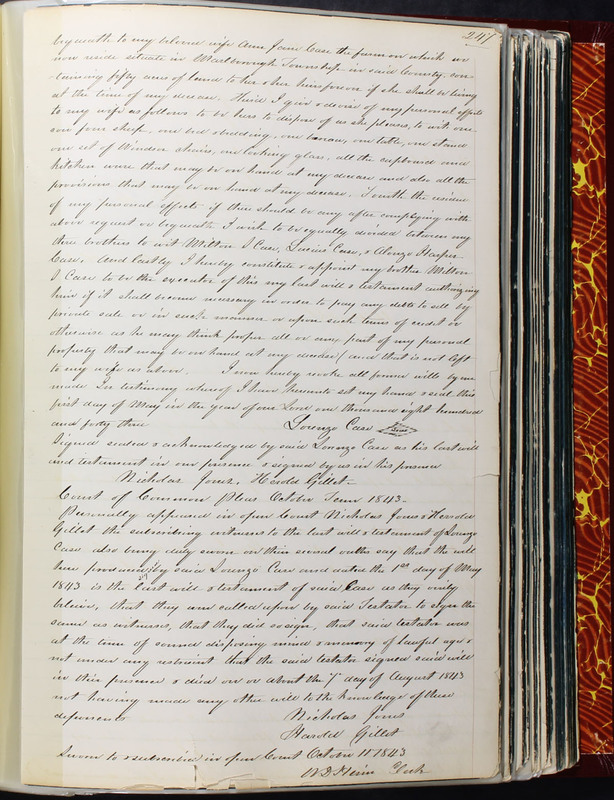 247
bequeath to my beloved wife Ann Jane Case the farm on which we
now reside situate in Marlborough Township in said County con
-taining fifty acres of land to her & her heirs forever if she shall be living
at the time of my decease. Third I give & devise of my personal effects
to my wife as follows to be hers to dispose of as she pleases, to wit, one
cow four sheep, one bed & bedding, one bureau, one table, one stand
one set of Windsor chairs, one looking glass, all the cupboard and
kitchen ware that may be on hand at my decease and also all the
provisions that may be on hand at my decease. Fourth the residue
of my personal effects if there should be any after complying with
above request or bequeaths I wish to be equally divided between my
three brothers to wit Milton D Case, Lucius Case, & Alonzo Harper
Case. And Lastly I hereby constitute & appoint my brother Milton
D Case to be the executor of this my last will & testament authorizing
him if it shall become necessary in order to pay any debts to sell by
private sale or in such manner or upon such terms of credit or
otherwise as he may think proper all or any part of my personal
property that may be on hand at my decease (and that is not left
to my wife as above. I now hereby revoke all former wills by me
made In testimony whereof I have hereunto set my hand & seal this
first day of May in the year of our Lord one thousand eight hundred
and forty three Lorenzo Case Seal
Signed sealed & acknowledged by said Lorenzo Case as his last will
and testament in our presence & signed by us in his presence
Nicholas Jones, Harold Gillet
Court of Common Pleas October Term 1843.
Personally appeared in open Court Nicholas Jones & Harold
Gillet the subscribing witnesses to the last will & testament of Lorenzo
Case also being duly sworn on their several oaths say that the will
here produced by said Lorenzo Case and dated the 1st day of May
1843 is the last will & testament of said Case as they verily
believe, that they were called upon by said Testator to sign the
same as witnesses, that they did so sign, that said testator was
at the time of sound disposing mind & memory of lawful age &
not under any restraint that the said testator signed said will
in their presence & died on or about the 7th day of August 1843
not having made any other will to the knowledge of these
deponents Nicholas Jones
Harold Gillet
Sworn to & subscribed in open Court October 11 1843
Clerk